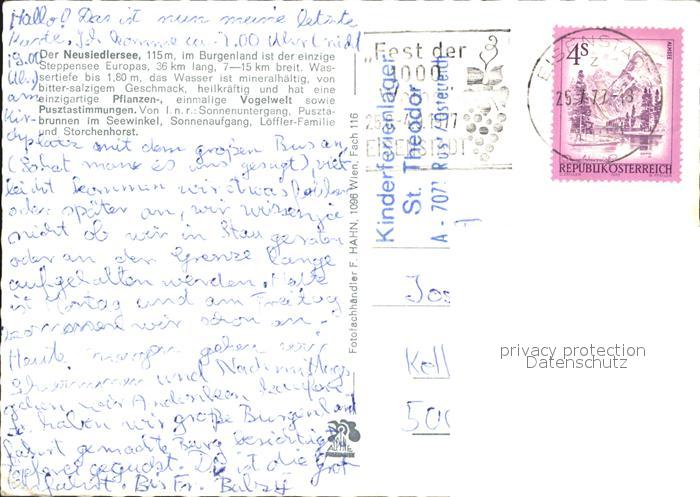 Hallo! Das ist nun meine letzte
Karte. Ich komme ca. 7.00 Uhr (nicht
Der Neusiedlersee, 115 m, im Burgenland ist der einzige
Steppensee Europas, 36 km lang, 7—15 km breit. Was-
sertiefe bis 1,80 m, das Wasser ist mineralhältig, von
bitter-salzigem Geschmack, heilkräftig und hat eine
einzigartige Pflanzen-, einmalige Vogelwelt sowie
Pusztastimmungen. Von l. n. r.: Sonnenuntergang, Puszta-
brunnen im Seewinkel, Sonnenaufgang, Löffler-Familie
und Storchenhorst.
Uhr)
am
Kir-
chplatz mit dem großen Bus an
(So hat man es uns gesagt), viel
leicht kommen wir etwas früher
oder später an, wir wissen ja
nicht ob wir in Stau geraten
oder an der Grenze lange
aufgehalten werden. Heute
ist Montag und am Freitag
wir schon an.
Heute morgen gehen wir
Schwimmen und Nachmittags
gehen wir Andenken kaufen.
haben wir große Burgenland
fahrt gemacht Burg besichtigt
geguckt. Das ist die
Bis Fr.
Fotofachhändler F. HAHN, 1096 Wien, Fach 116
Fest der
1000
EISENSTADT
Kinderferienlager
St. Theodor
A - 7071 Rust / Österreich
EISENSTADT
25.7.77-18
4S
REPUBLIK ÖSTERREICH
Jos
Kell
500
privacy protection
Datenschutz